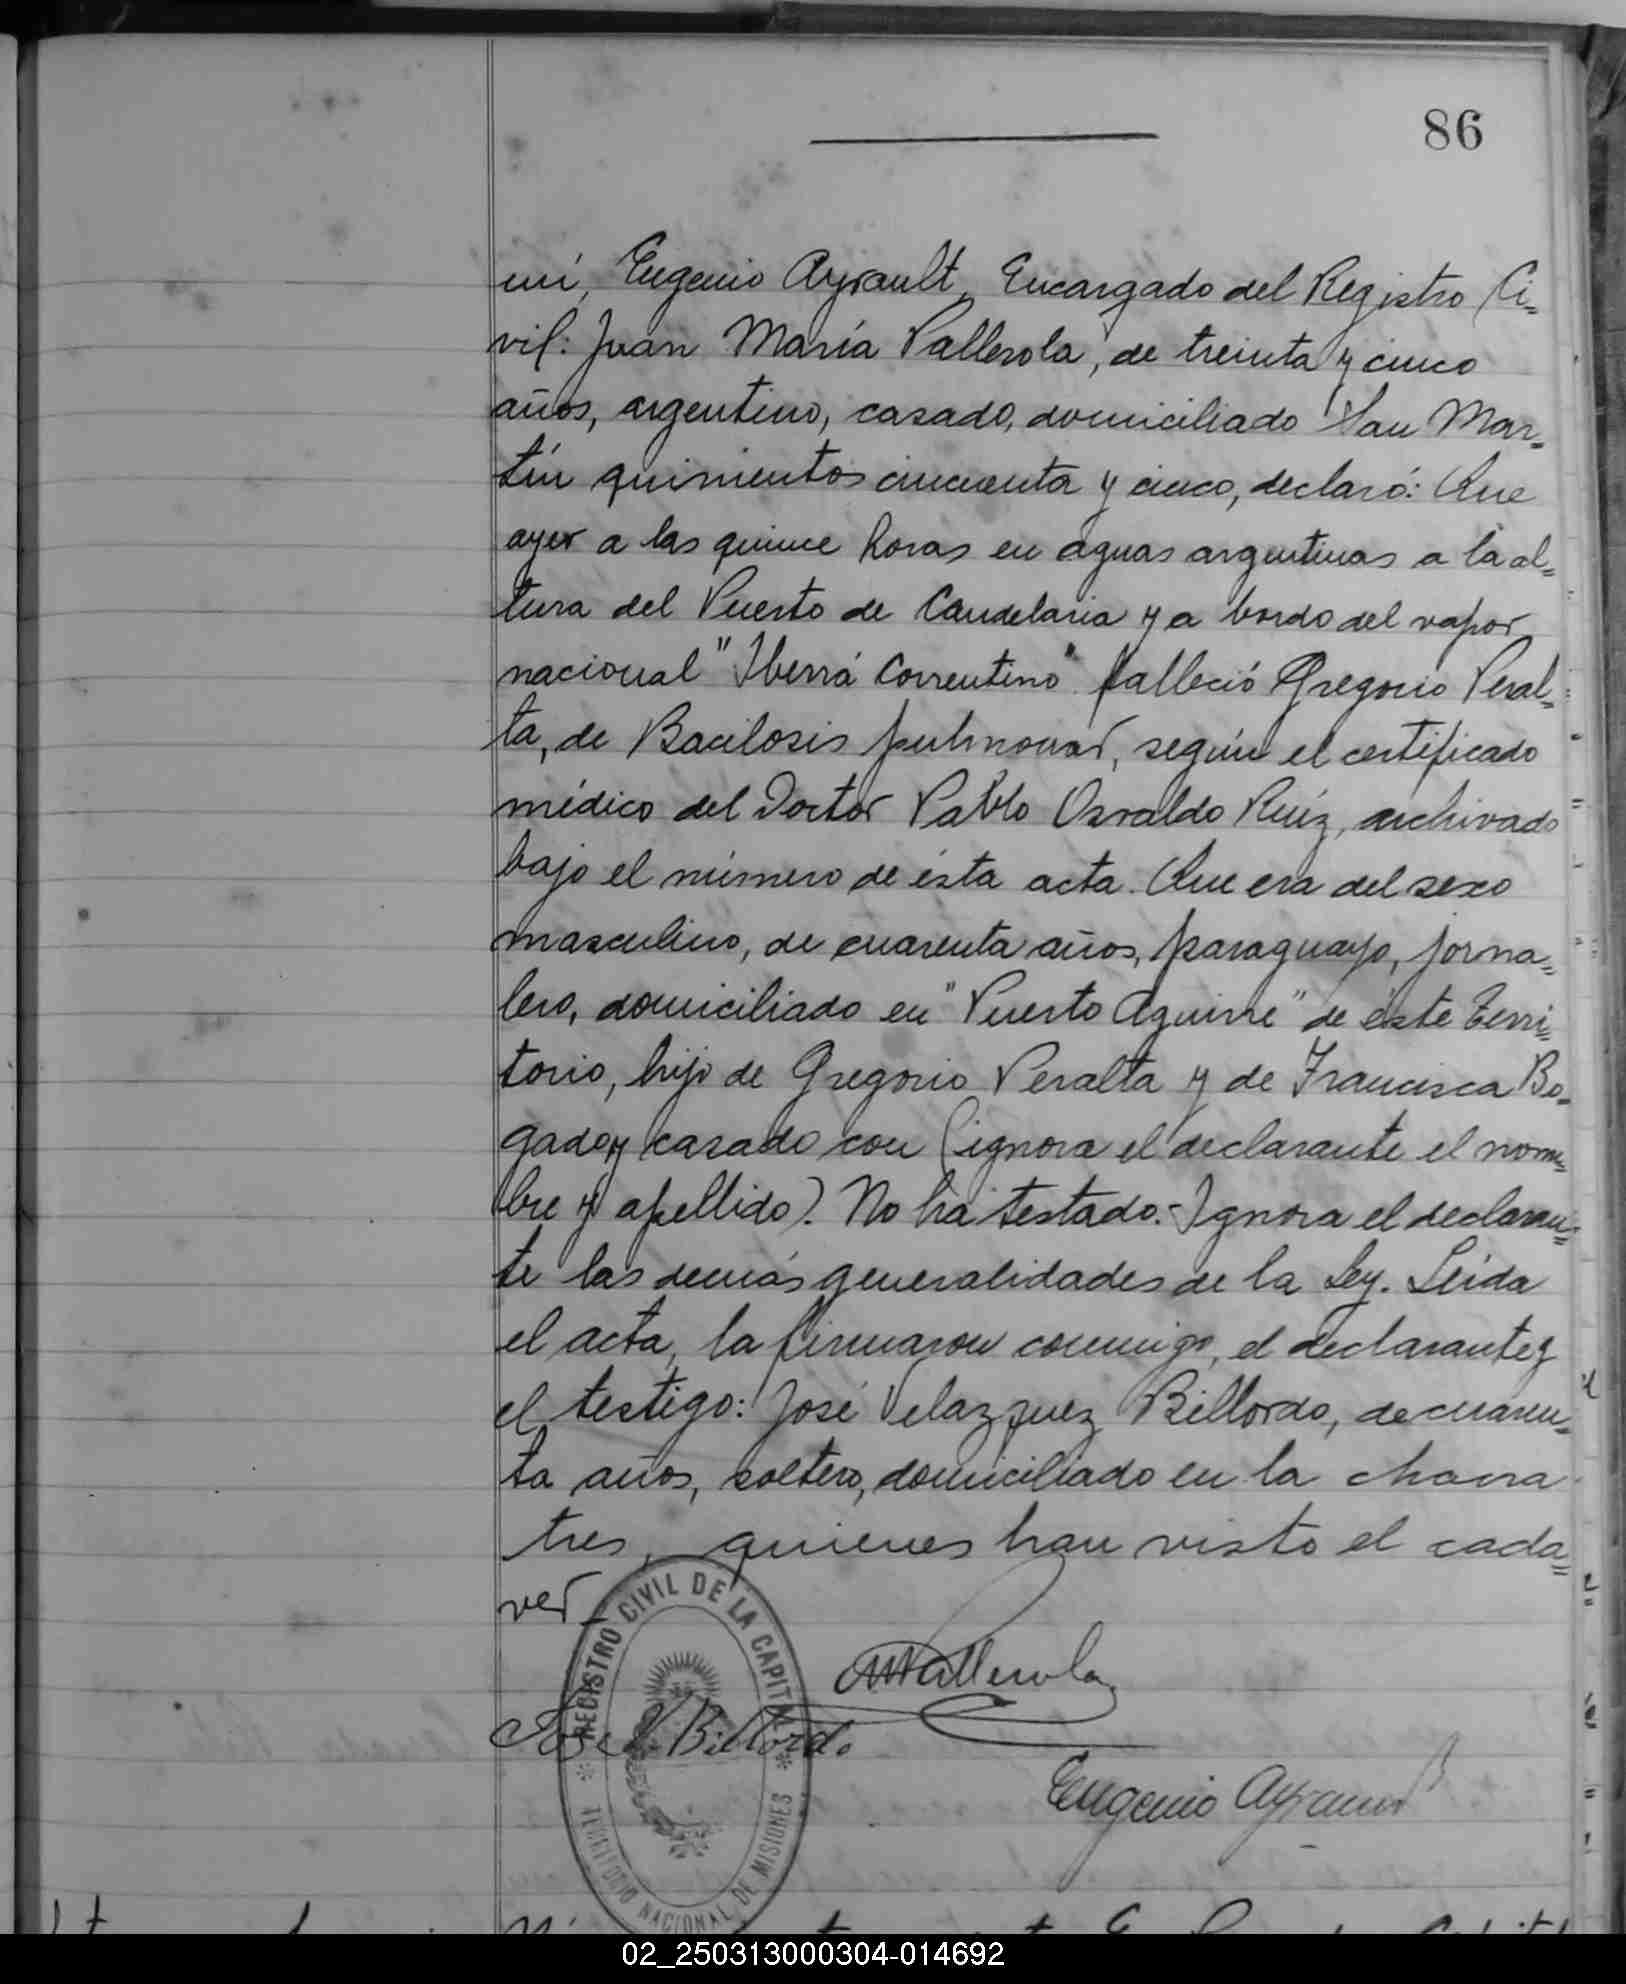 86
mí, Eugenio Ayrault, Encargado del Registro Ci=
vil: Juan María Pallerola, de treinta y cinco
años, argentino, casado, domiciliado San Mar=
tín quinientos cincuenta y cinco, declaró: Que
ayer a las quince horas en aguas argentinas a la al=
tura del Puerto de Candelaria y a bordo del vapor
nacional "Iberá Correntino" falleció Gregorio Peral=
ta, de Bacilosis pulmonar, según el certificado
médico del Doctor Pablo Osvaldo Ruíz, archivado
bajo el número de ésta acta. Que era del sexo
masculino, de cuarenta años, paraguayo, jorna=
lero, domiciliado en "Puerto Aguirre" de éste Terri=
torio, hijo de Gregorio Peralta y de Francisca Bo=
gado y casado con (ignora el declarante el nom=
bre y apellido). No ha testado.- Ignora el declaran=
te las demás generalidades de la Ley. Leída
el acta, la firmaron conmigo, el declarante y
el testigo: José Velazquez Billordo, de cuaren=
ta años, soltero, domiciliado en la chacra
tres, quienes han visto el cada=
ver_
MPallerola
José V Billordo
Eugenio Ayrault
REGISTRO CIVIL DE LA CAPITAL
TERRITORIO NACIONAL DE MISIONES
02_250313000304-014692